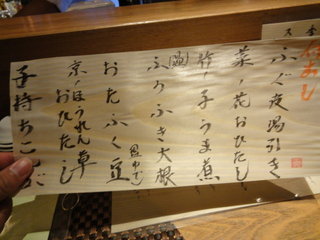 ふぐ皮湯引き
菜ノ花おひたし
竹ノ子うま煮
(温)
ふろふき大根
おたふく豆
京ほうれん草
おひたし
子持ちこんぶ